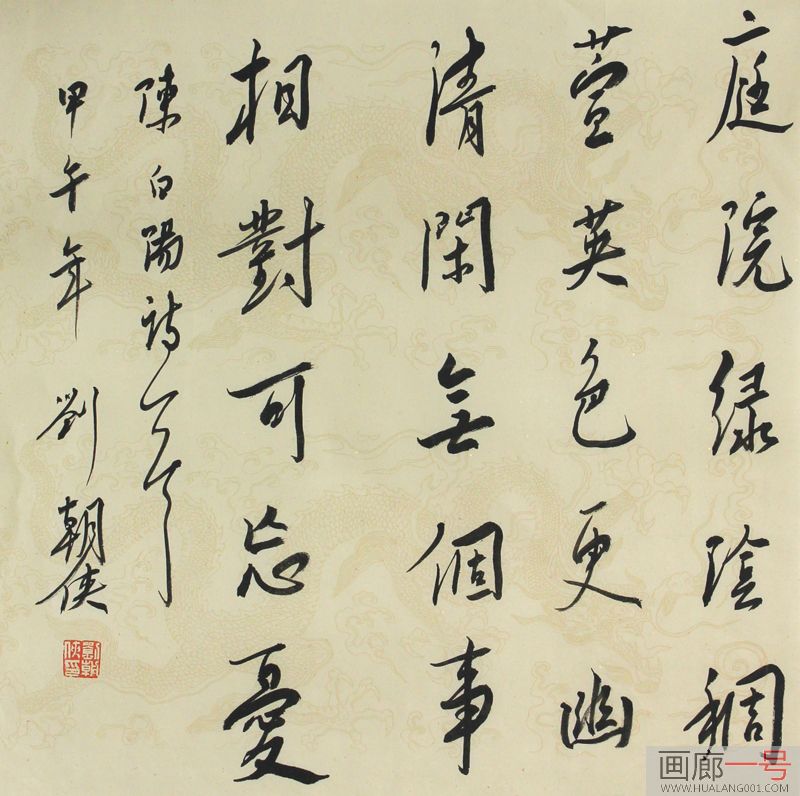 庭院绿陰稠
萱英色更幽
清閑無個事
相對可忘憂
陳白陽詩一首
甲午年 劉朝侠
劉朝
侠印
画廊一号
WWW.HUALANG001.COM